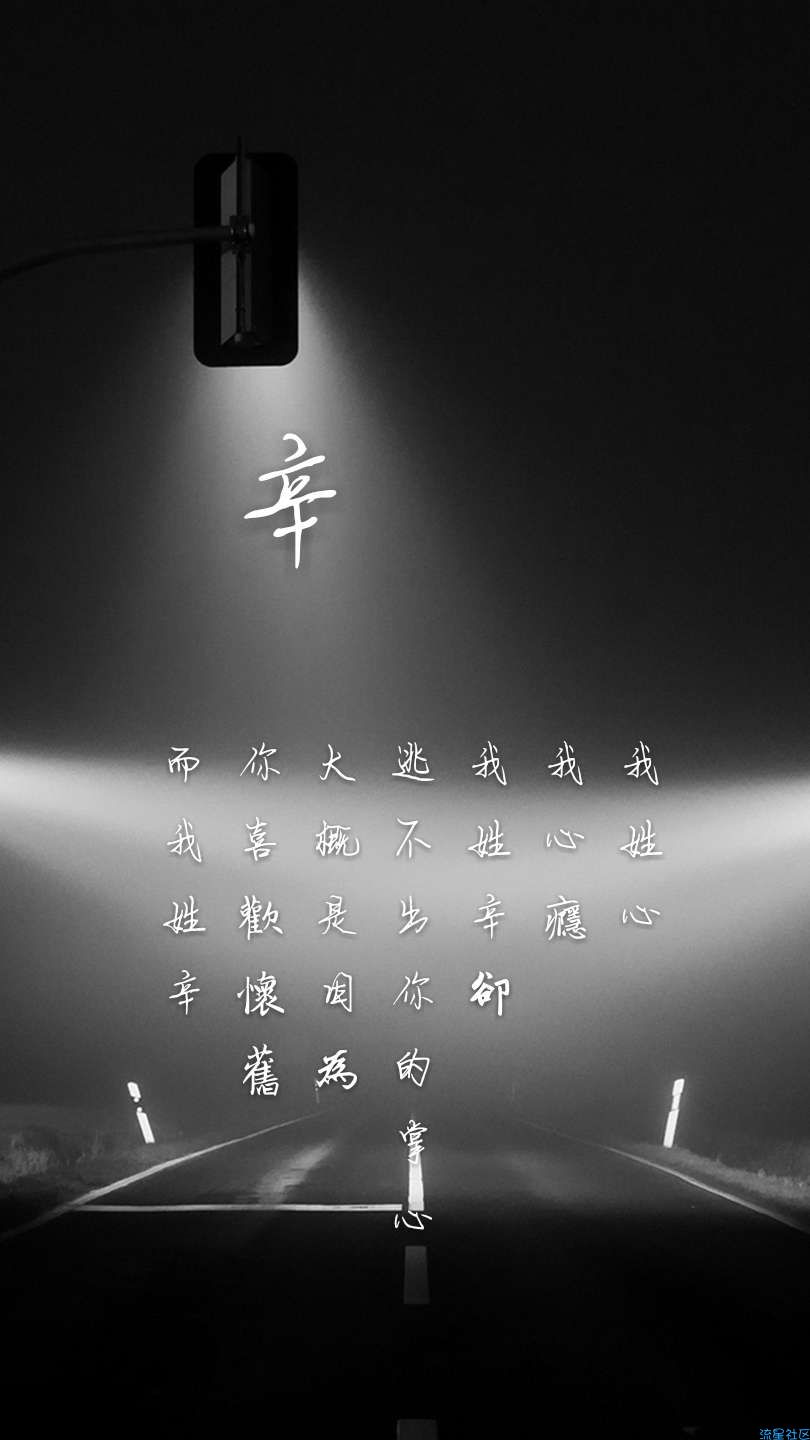 辛
我姓心
我心癮
我姓辛卻
逃不出你的掌心
大概是因為
你喜歡懷舊
而我姓辛
流星社区